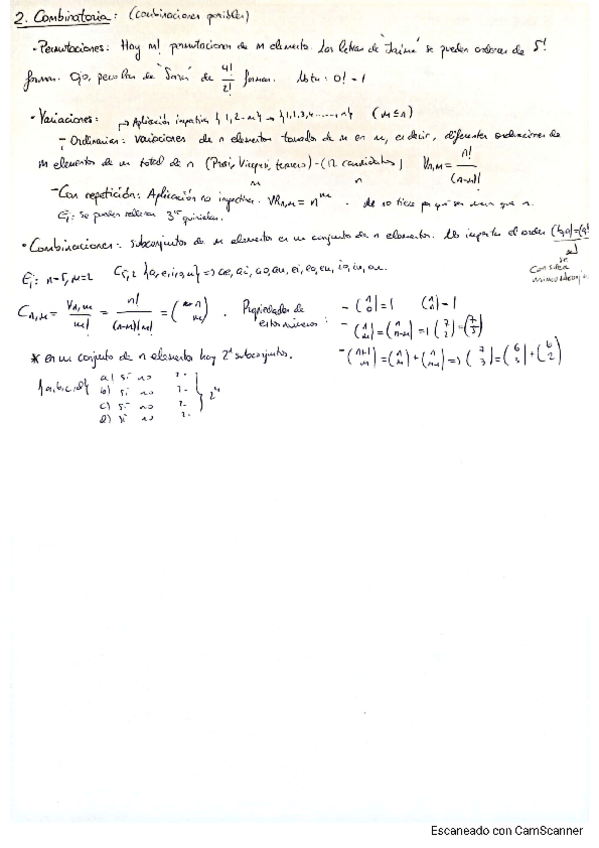 2. Combinatoria: (combinaciones posibles)
· Permutaciones: Hay m! permutaciones de m elementos. Las letras de "Jaime" se pueden ordenar de 5!
formas. las de "Sara" de 4!/2! formas. Nota: 0! = 1
· Variaciones: → Aplicación inyectiva {1, 2...m} → {1, 2, 3, 4......, n} (m ≤ n)
- Ordinarias: variaciones de n elementos tomados de m en m, es decir, diferentes ordenaciones de
m elementos de un total de n (Presi, Vicepresi, tesorero) - (12 candidatos) Vn,m = n!/(n-m)!
m n
- Con repetición: Aplicación no inyectiva. VRn,m = n^m. no tiene por qué ser menor que n.
Ej: Se pueden rellenar 3^15 quinielas.
· Combinaciones: subconjuntos de m elementos en un conjunto de n elementos. No importa el orden
Ej: n=5, m=2 C5,2 {a,e,i,o,u} => ae, ai, ao, au, ei, eo, eu, io, iu, ou.
Cn,m = Vn,m/m! = n!/(n-m)!m! = (n m). Propiedades de estos números: - (n 0) = 1 (n n) = 1
- (n m) = (n n-m) => (7 2) = (7 5)
* en un conjunto de n elementos hay 2^n subconjuntos.
{a,b,c,d} a) si no 2·
b) si no 2·
c) si no 2·
d) si no 2·
2^4
Escaneado con CamScanner